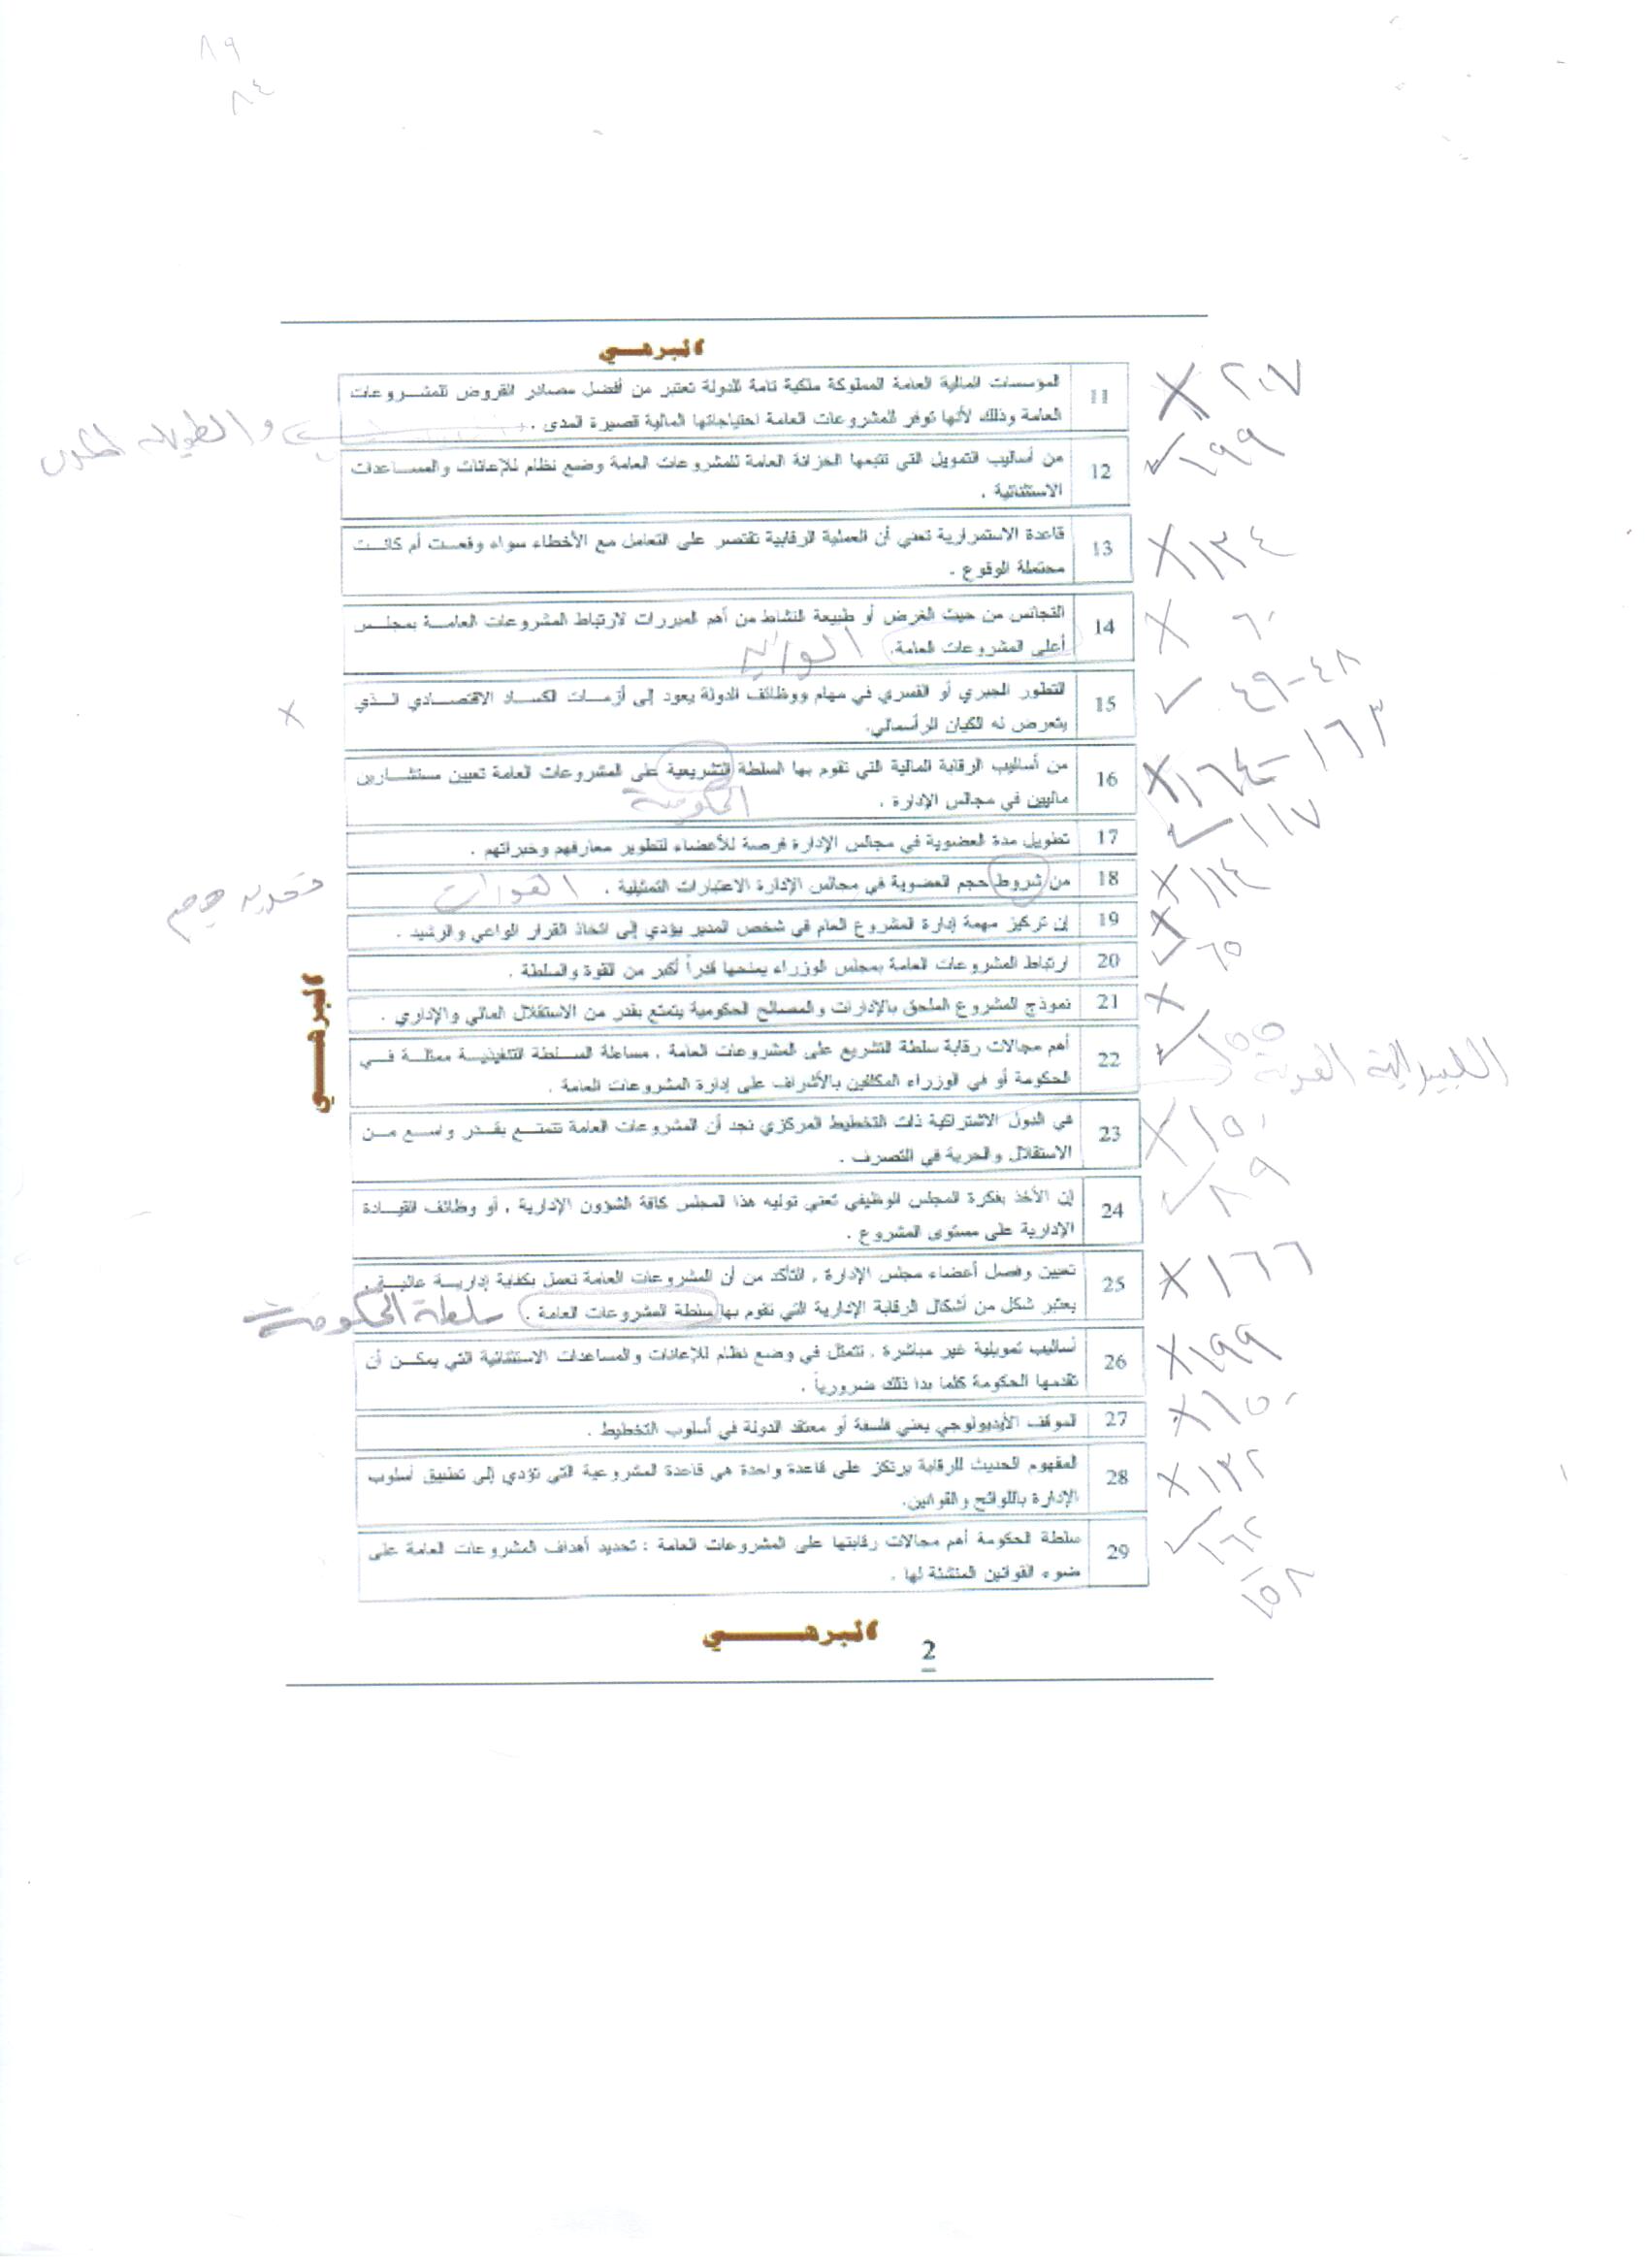 ٨٩
٨٤
البرهــي
11 المؤسسات المالية العامة المملوكة ملكية تامة للدولة تعتبر من أفضل مصادر القروض للمشـروعات × ٢٠٧
العامة وذلك لأنها توفر للمشروعات العامة احتياجاتها المالية قصيرة المدى . والطويلة
12 من أساليب التمويل التي تتبعها الخزانة العامة للمشروعات العامة وضع نظام للإعانات والمسـاعدات ✓ ١٩٩
الاستثنائية .
13 قاعدة الاستمرارية تعني أن العملية الرقابية تقتصر على التعامل مع الأخطاء سواء وقعـت أم كانـت × ١٣٤
محتملة الوقوع .
14 التجانس من حيث الغرض أو طبيعة النشاط من أهم المبررات لارتباط المشروعات العامـة بمجلـس × ٦٠
أعلى المشروعات العامة. الوزير
15 التطور الجبري أو القسري في مهام ووظائف الدولة يعود إلى أزمـات الكسـاد الاقتصـادي الـذي ✓ ٤٨-٤٩
يتعرض له الكيان الرأسمالي. ×
16 من أساليب الرقابة المالية التي تقوم بها السلطة التشريعية على المشروعات العامة تعيين مستشـارين × ١٦٣-١٦٤
ماليين في مجالس الإدارة . الحكومة
17 تطويل مدة العضوية في مجالس الإدارة فرصة للأعضاء لتطوير معارفهم وخبراتهم . ✓ ١١٧
18 من شروط حجم العضوية في مجالس الإدارة الاعتبارات التمثيلية . × ١١٤ تحديد حجم
19 إن تركيز مهمة إدارة المشروع العام في شخص المدير يؤدي إلى اتخاذ القرار الواعي والرشيد . ×
20 ارتباط المشروعات العامة بمجلس الوزراء يمنحها قدراً أكبر من القوة والسلطة . ✓ ٦٥
21 نموذج المشروع الملحق بالإدارات والمصالح الحكومية يتمتع بقدر من الاستقلال المالي والإداري . ×
البرهـــي
22 أهم مجالات رقابة سلطة التشريع على المشروعات العامة ، مساءلة السـلطة التنفيذيـة ممثلـة فـي ✓ ١٥٥
الحكومة أو في الوزراء المكلفين بالأشراف على إدارة المشروعات العامة . الليبرالية
23 في الدول الاشتراكية ذات التخطيط المركزي نجد أن المشروعات العامة تتمتـع بقـدر واسـع مـن × ١٥٠
الاستقلال والحرية في التصرف .
24 إن الأخذ بفكرة المجلس الوظيفي تعني توليه هذا المجلس كافة الشؤون الإدارية ، أو وظائف القيـادة ✓ ٨٩
الإدارية على مستوى المشروع .
25 تعيين وفصل أعضاء مجلس الإدارة ، التأكد من أن المشروعات العامة تعمل بكفاية إداريـة عاليـة ، × ١٦٦
يعتبر شكل من أشكال الرقابة الإدارية التي تقوم بها سلطة المشروعات العامة . سلطة الحكومة
26 أساليب تمويلية غير مباشرة ، تتمثل في وضع نظام للإعانات والمساعدات الاستثنائية التي يمكـن أن × ١٩٩
تقدمها الحكومة كلما بدا ذلك ضرورياً .
27 الموقف الأيديولوجي يعني فلسفة أو معتقد الدولة في أسلوب التخطيط . × ١٥٠
28 المفهوم الحديث للرقابة يرتكز على قاعدة واحدة هي قاعدة المشروعية التي تؤدي إلى تطبيق أسلوب × ١٣٢
الإدارة باللوائح والقوانين.
29 سلطة الحكومة أهم مجالات رقابتها على المشروعات العامة : تحديد أهداف المشروعات العامة على ✓ ١٦٢
ضوء القوانين المنشئة لها . ١٥٨
البرهـــــي
2